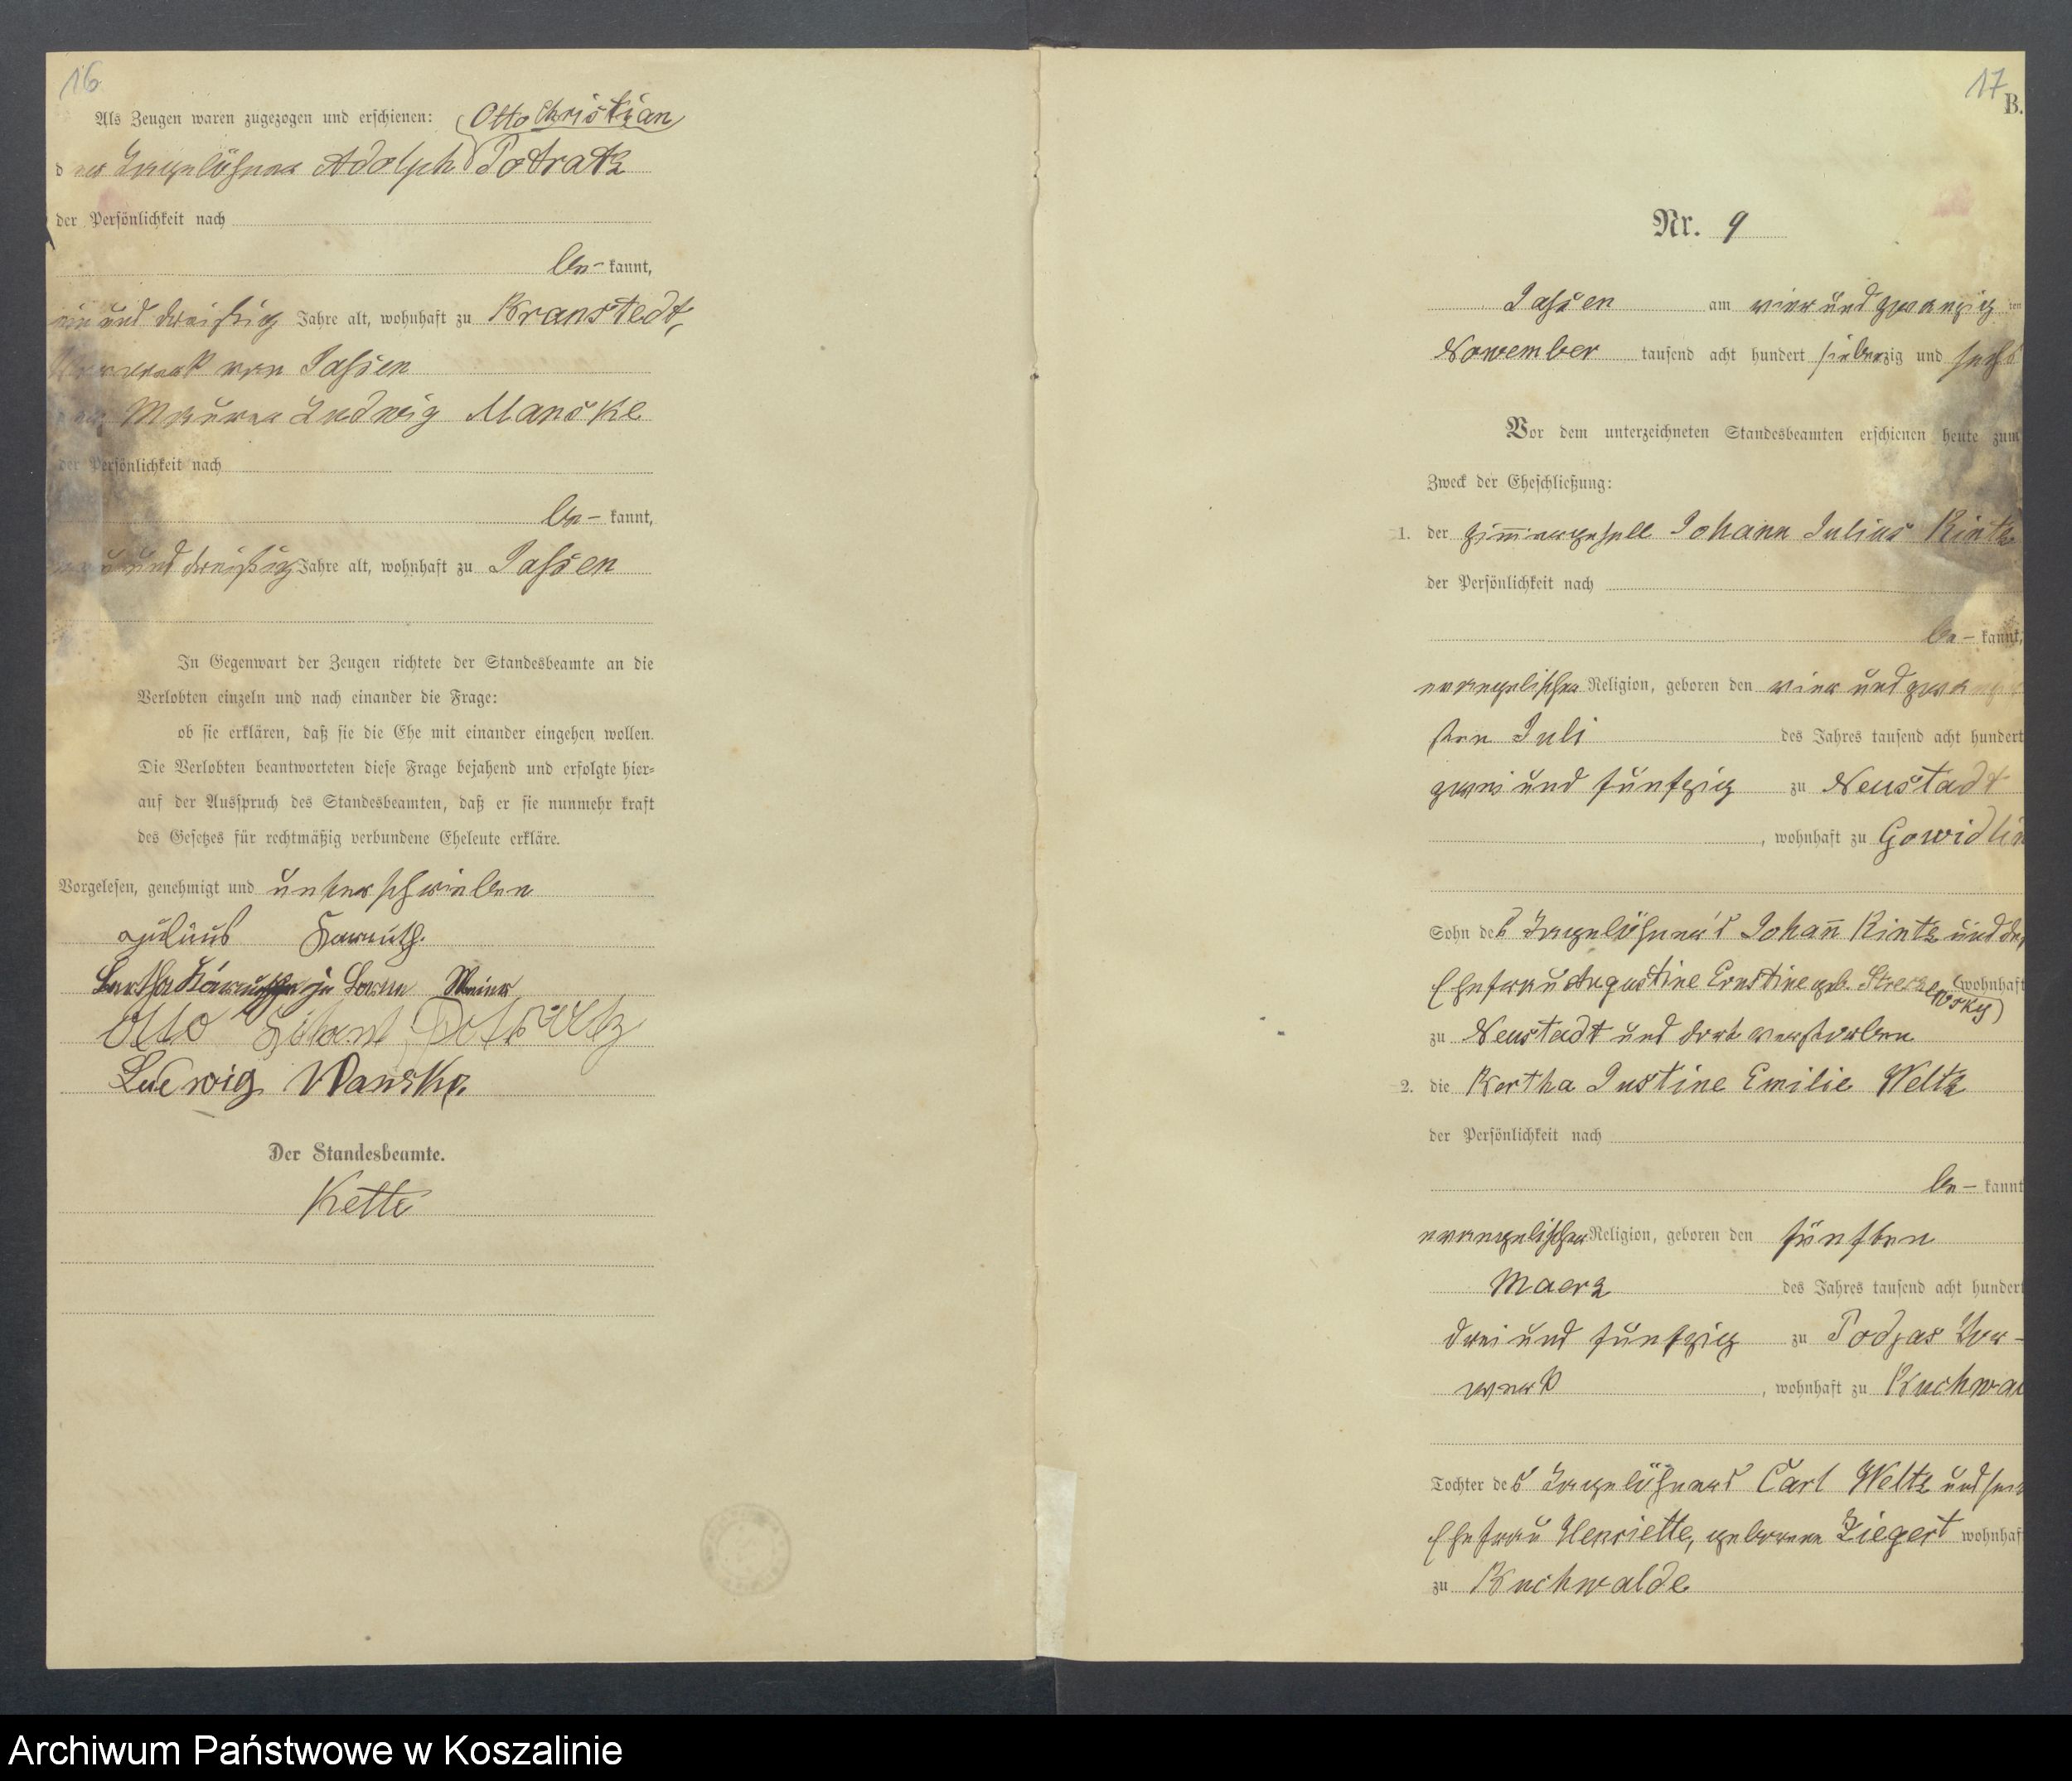 16
Als Zeugen waren zugezogen und erschienen: Otto Christian
d er Tagelöhner Adolph Potratz
der Persönlichkeit nach
be- kannt,
ein und dreißig Jahre alt, wohnhaft zu Kranstedt,
Vorwerk von Jassen
der Maurer Ludwig Manske
der Persönlichkeit nach
be- kannt,
und dreißig Jahre alt, wohnhaft zu Jassen
In Gegenwart der Zeugen richtete der Standesbeamte an die
Verlobten einzeln und nach einander die Frage:
ob sie erklären, daß sie die Ehe mit einander eingehen wollen.
Die Verlobten beantworteten diese Frage bejahend und erfolgte hier-
auf der Ausspruch des Standesbeamten, daß er sie nunmehr kraft
des Gesetzes für rechtmäßig verbundene Eheleute erkläre.
Vorgelesen, genehmigt und unterschrieben
Julius
Bertha
Otto Potratz
Ludwig Manske
Der Standesbeamte.
Kette
17
B.
Nr. 9
Jassen am vier und zwanzig ten
November tausend acht hundert siebenzig und sechs
Vor dem unterzeichneten Standesbeamten erschienen heute zum
Zweck der Eheschließung:
1. der Zimmergesell Johann Julius Rintz
der Persönlichkeit nach
be- kannt,
evangelischer Religion, geboren den vier und zwanzig
sten Juli des Jahres tausend acht hundert
zwei und fünfzig zu Neustadt
, wohnhaft zu Gowidlin
Sohn des Tagelöhners Johann Rintz und der
Ehefrau Augustine Ernestine geb. wohnhaft
zu Neustadt und dort verstorben
2. die Bertha Justine Emilie Weltz
der Persönlichkeit nach
be- kannt
evangelischer Religion, geboren den fünften
Maerz des Jahres tausend acht hundert
drei und fünfzig zu Podjas Vor-
werk , wohnhaft zu Buchwal
Tochter des Tagelöhners Carl Weltz und sein
Ehefrau Henriette, geborene Ziegert wohnhaf
zu Buchwalde
Archiwum Państwowe w Koszalinie